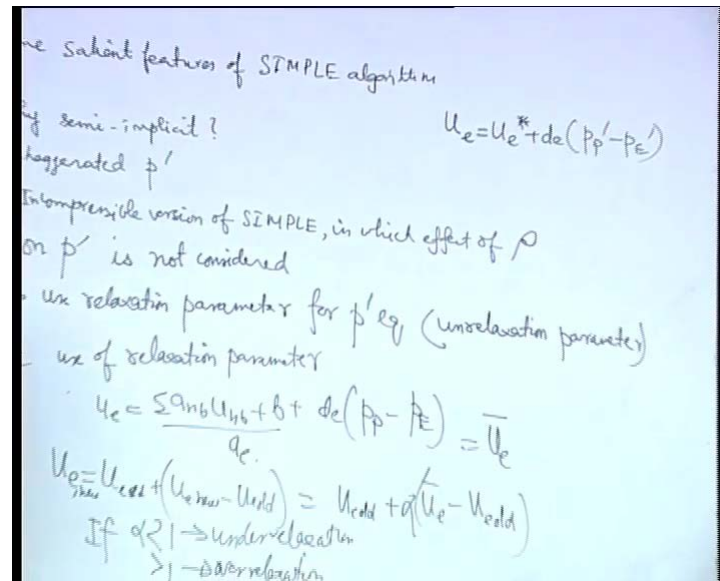 ne salient features of SIMPLE algorithm
y semi-implicit?
u_e = u_e* + d_e(p_P' - p_E')
haggerated p'
Incompressible version of SIMPLE, in which effect of ρ
on p' is not considered
use relaxation parameter for p' eq (unrelaxation parameter)
use of relaxation parameter
u_e = (Σ a_nb u_nb + b)/a_e + d_e(p_P - p_E) = ū_e
u_e new = u_e old + (u_e new - u_e old) = u_e old + α(ū_e - u_e old)
If α < 1 → underrelaxation
> 1 → overrelaxation